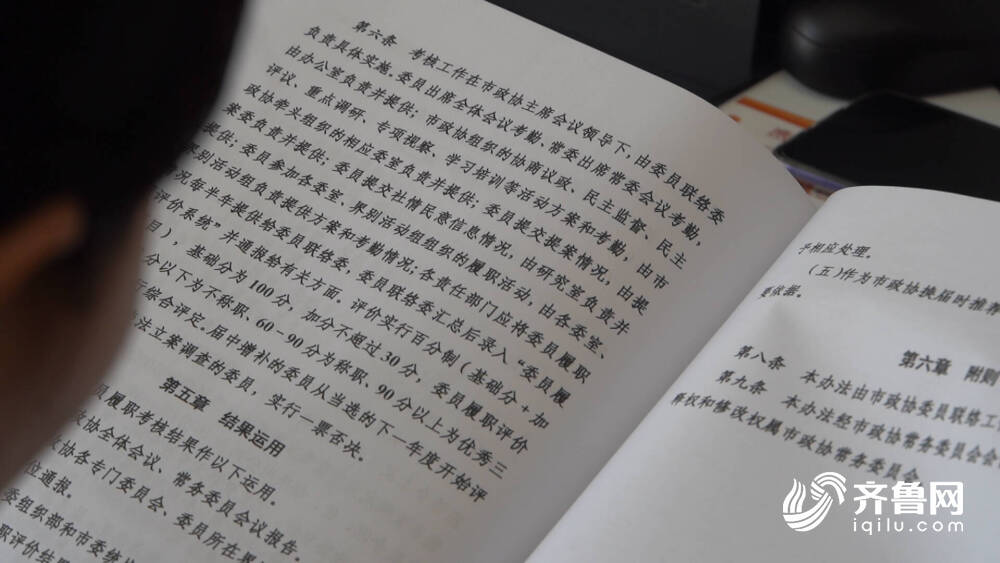 第六条 考核工作在市政协主席会议领导下，由委员联络委
负责具体实施。委员出席全体会议考勤、常委出席常委会议考勤，
由办公室负责并提供；市政协组织的协商议政、民主监督、民主
评议、重点调研、专项视察、学习培训等活动方案和考勤，由市
政协牵头组织的相应委室负责并提供；委员提交提案情况，由提
案委负责并提供；委员提交社情民意信息情况，由研究室负责并
提供；委员参加各委室、界别活动组组织的履职活动，由各委室、
界别活动组负责提供方案和考勤情况；各责任部门应将委员履职
况每半年提供给委员联络委，委员联络委汇总后录入“委员履
评价系统”并通报给有关方面。评价实行百分制（基础分+加
目），基础分为100分，加分不超过30分，委员履职评价
分以下为不称职、60－90分为称职、90分以上为优秀三
行综合评定。届中增补的委员从当选的下一年度开始评
法立案调查的委员，实行一票否决。
第五章 结果运用
员履职考核结果作以下运用。
政协全体会议、常务委员会议报告。
政协各专门委员会、委员所在界
位通报。
委组织部和市委统
职评价结
予相应处理。
（五）作为市政协换届时推荐
要依据。
第六章 附则
第八条 本办法由市政协委员联络工
第九条 本办法经市政协常务委员会会
释权和修改权属市政协常务委员会。
齐鲁网
iqilu.com